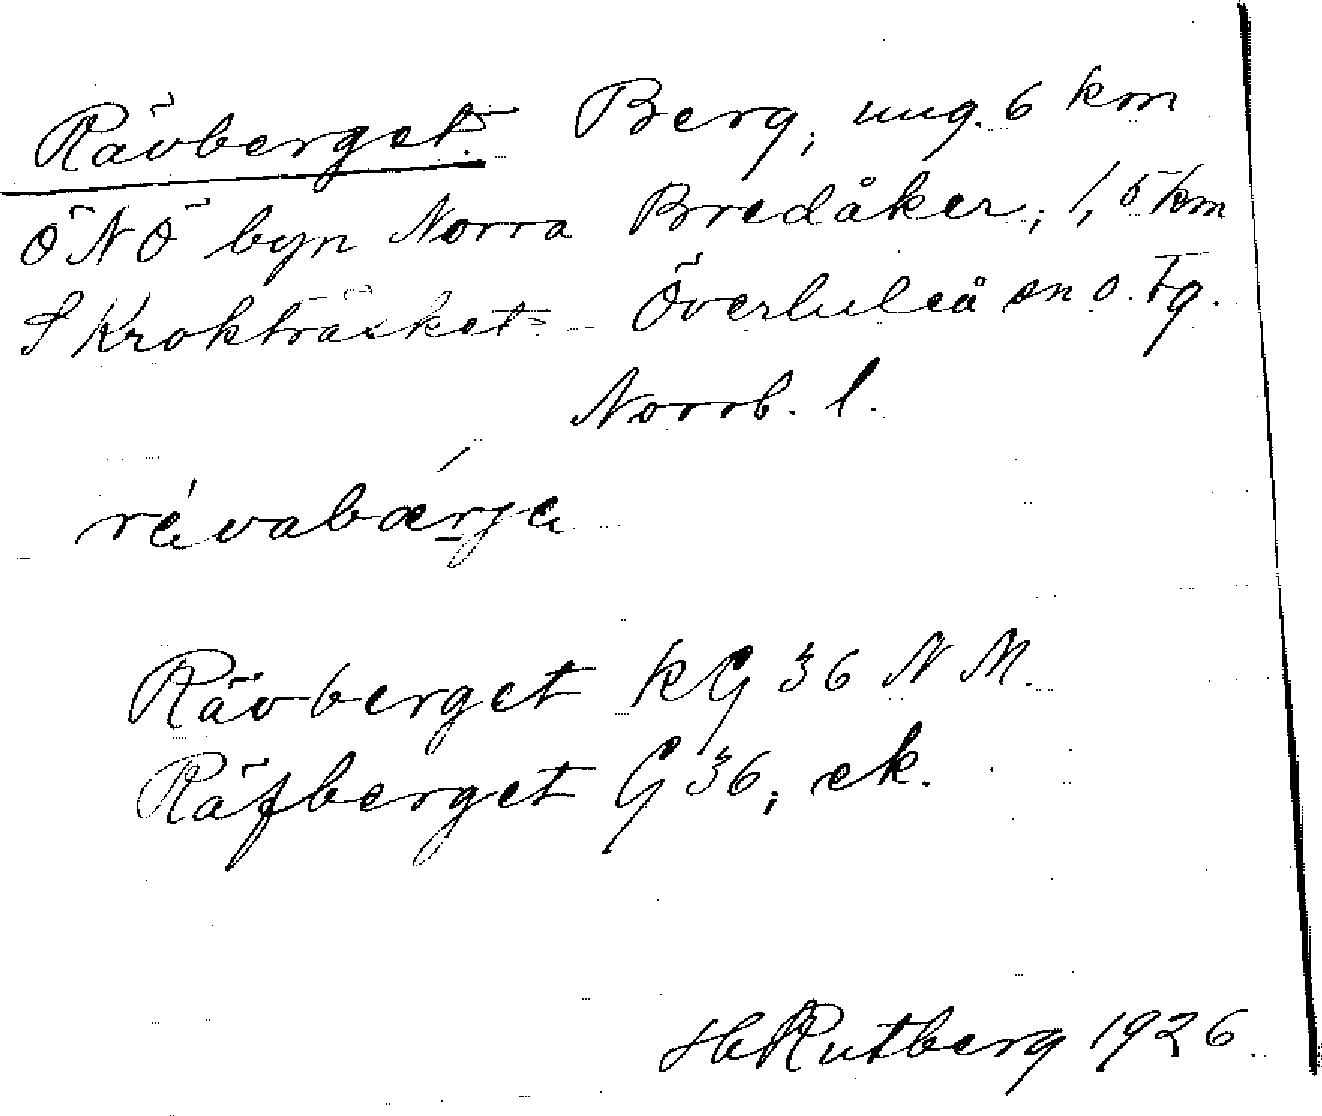 Rävberget. Berg, ung. 6 km
ÖNÖ byn Norra Bredåker, 1,5 km
S Krokträsket. Överluleå sn o. tg.
Norrb. l.
révabærje
Rävberget kG 36 N M.
Räfberget G 36, ek.
H Rutberg 1926